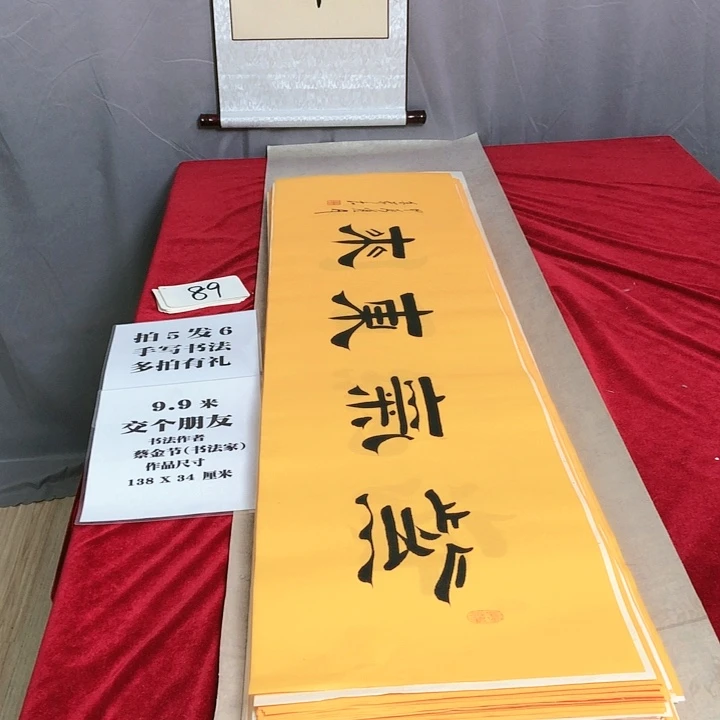 89
拍 5 发 6
手写书法
多拍有礼
9.9 米
交个朋友
书法作者
蔡金节(书法家)
作品尺寸
138 X 34 厘米
紫氣東来